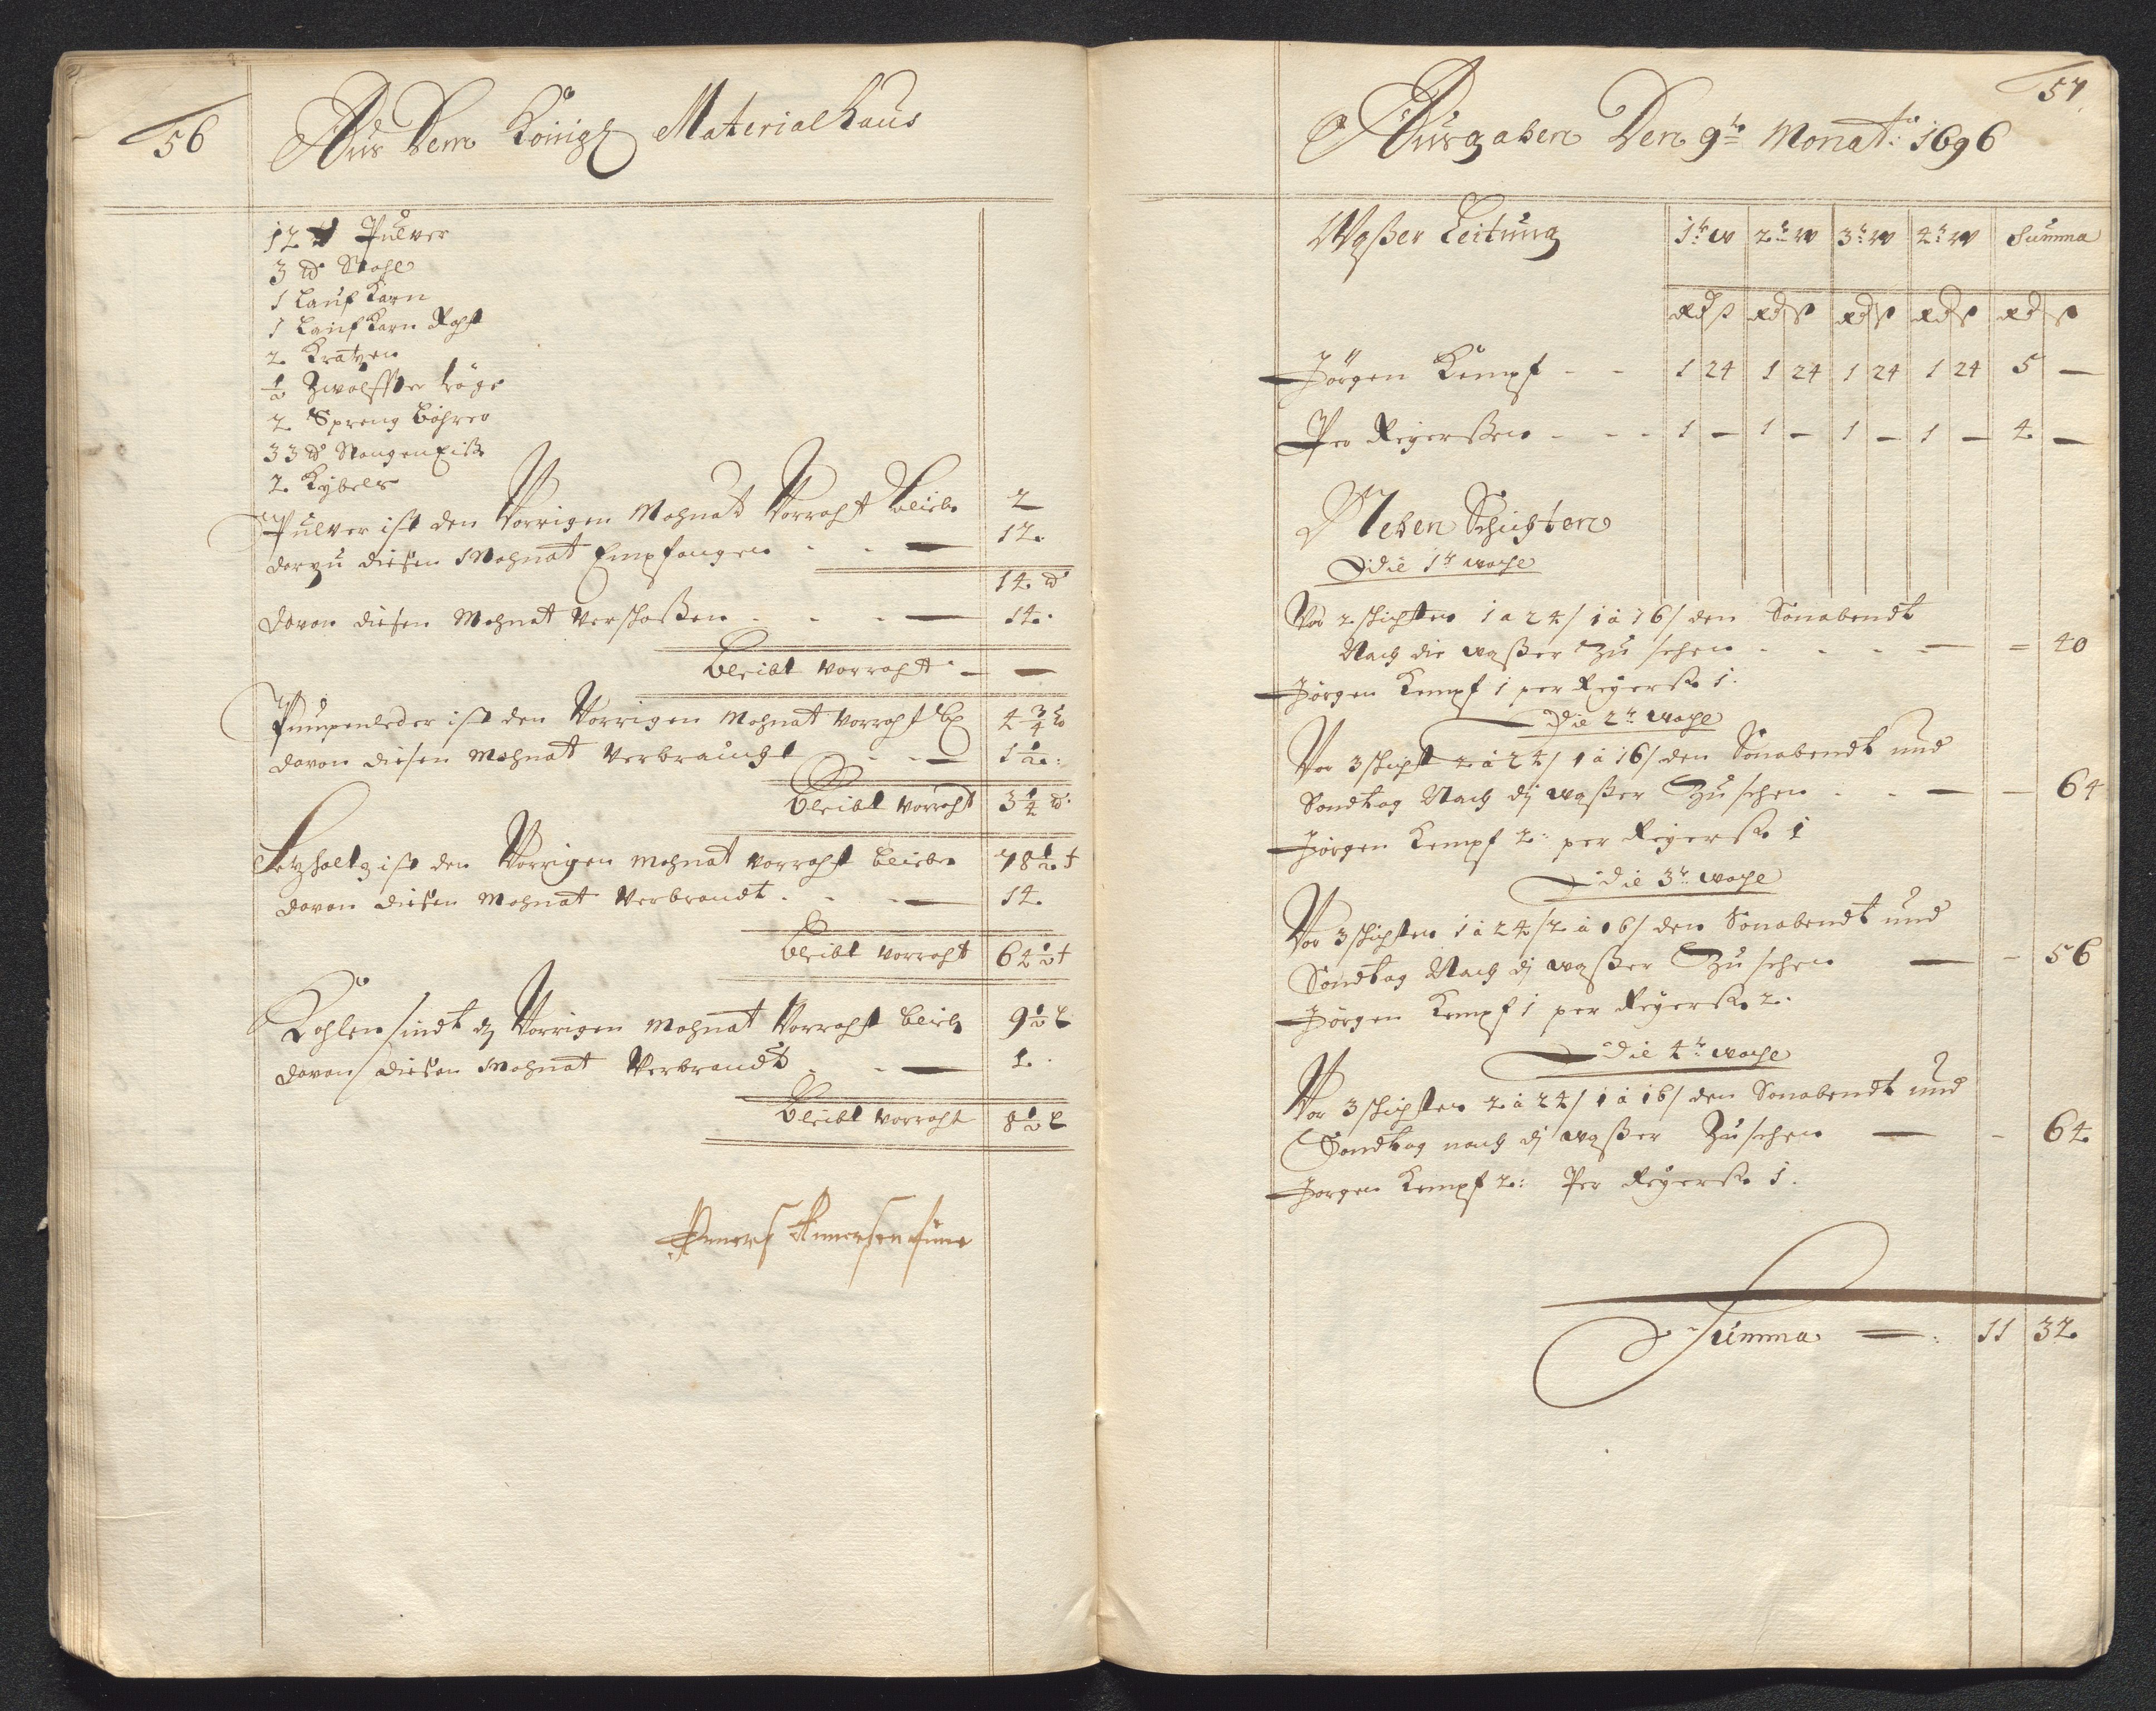 56
Aus Dem Königl Materialhaus
12 ℔ Pulver
3 ℔ Stahl
1 Lauf Karn
1 Lauf Karn Rahst
2 Kratzen
½ Zwolffter tröge
2 Spreng bohrer
33 ℔ Stangen Eiß
2 Kybels
Pulver ist den Vorrigen Mohnat Vorraht bleibn 2
darzu diesen Mohnat Empfangen - - — 12.
14 ℔
davon diesen Mohnat verschoßen - - - — 14.
bleibt vorraht - — —
Pumpenleder ist den Vorrigen Mohnat vorraht bl 4¾ ℔
davon diesen Mohnat verbraucht - - — 1½:
bleibt vorraht 3¼ ℔
Setzholtz ist den Vorrigen Mohnat vorraht bliebn 78½ t
davon diesen Mohnat verbrandt - - - — 14
bleibt vorraht 64½ t
Kohlen sindt dn Vorrigen Mohnat Vorraht blieb 9½ L
davon diesen Mohnat Verbrandt - - — 1.
bleibt vorraht 8½ L
Anners Annersen
57
Ausgaben Den 9te Monat: 1696
Waßer Leitung 1te W 2te W 3te W 4te W Summa
Rd ß Rd ß Rd ß Rd ß Rd ß
Jörgen Kempf - - 1 24 1 24 1 24 1 24 5 —
Per Reyerßen - - - 1 — 1 — 1 — 1 — 4 —
Neben Schichten
Die 1te woche
Vor 2 schichten 1 a 24/ 1 à 16/ den Sonabendt
Nach die waßer zu sehen - - - - — = 40
Jörgen Kempf 1 per Reyerß 1.
Die 2te woche
Vor 3 schicht 2 à 24/ 1 à 16/ den Sonabendt und
Sondtag Nach dj waßer Zu sehen - - — — 64
Jörgen Kempf 2: per Reyerß 1
Die 3te woche
Vor 3 schichten 1 à 24/ 2 à 16/ den Sonabendt und
Sondtag Nach dj waßer Zu sehen — - 56
Jörgen Kempf 1 per Reyerß 2.
Die 4te woche
Vor 3 schichten 2 à 24/ 1 à 16/ den Sonabendt und
Sondtag nach dj waßer Zu sehen — - 64
Jorgen Kempf 2: Per Reyerß 1.
Summa — : 11 32